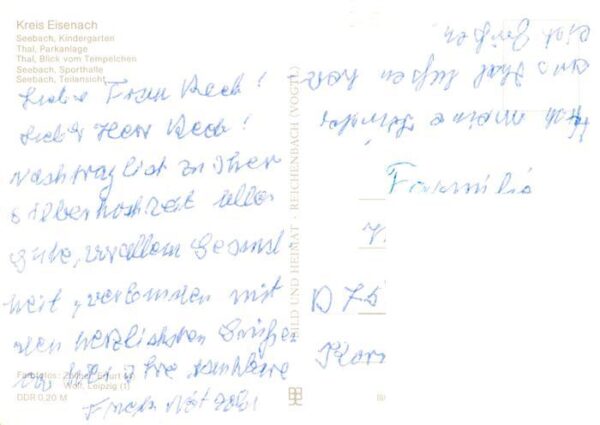 Kreis Eisenach
Seebach, Kindergarten
Thal, Parkanlage
Thal, Blick vom Tempelchen
Seebach, Sporthalle
Seebach, Teilansicht
Liebe Frau Reeb!
Lieber Herr Reeb!
Nachträglich zu Ihrer
Silberhochzeit alles
Gute, vor allem Gesund
heit, verbunden mit
den herzlichsten Grüßen
Ihre dankbare
Frau
Farbfotos: Erfurt
Wolf, Leipzig (1)
DDR 0,20 M
BILD UND HEIMAT · REICHENBACH (VOGTL)
Auch meine
aus Thal lassen herz
lichst Grüßen
Familie
D 75